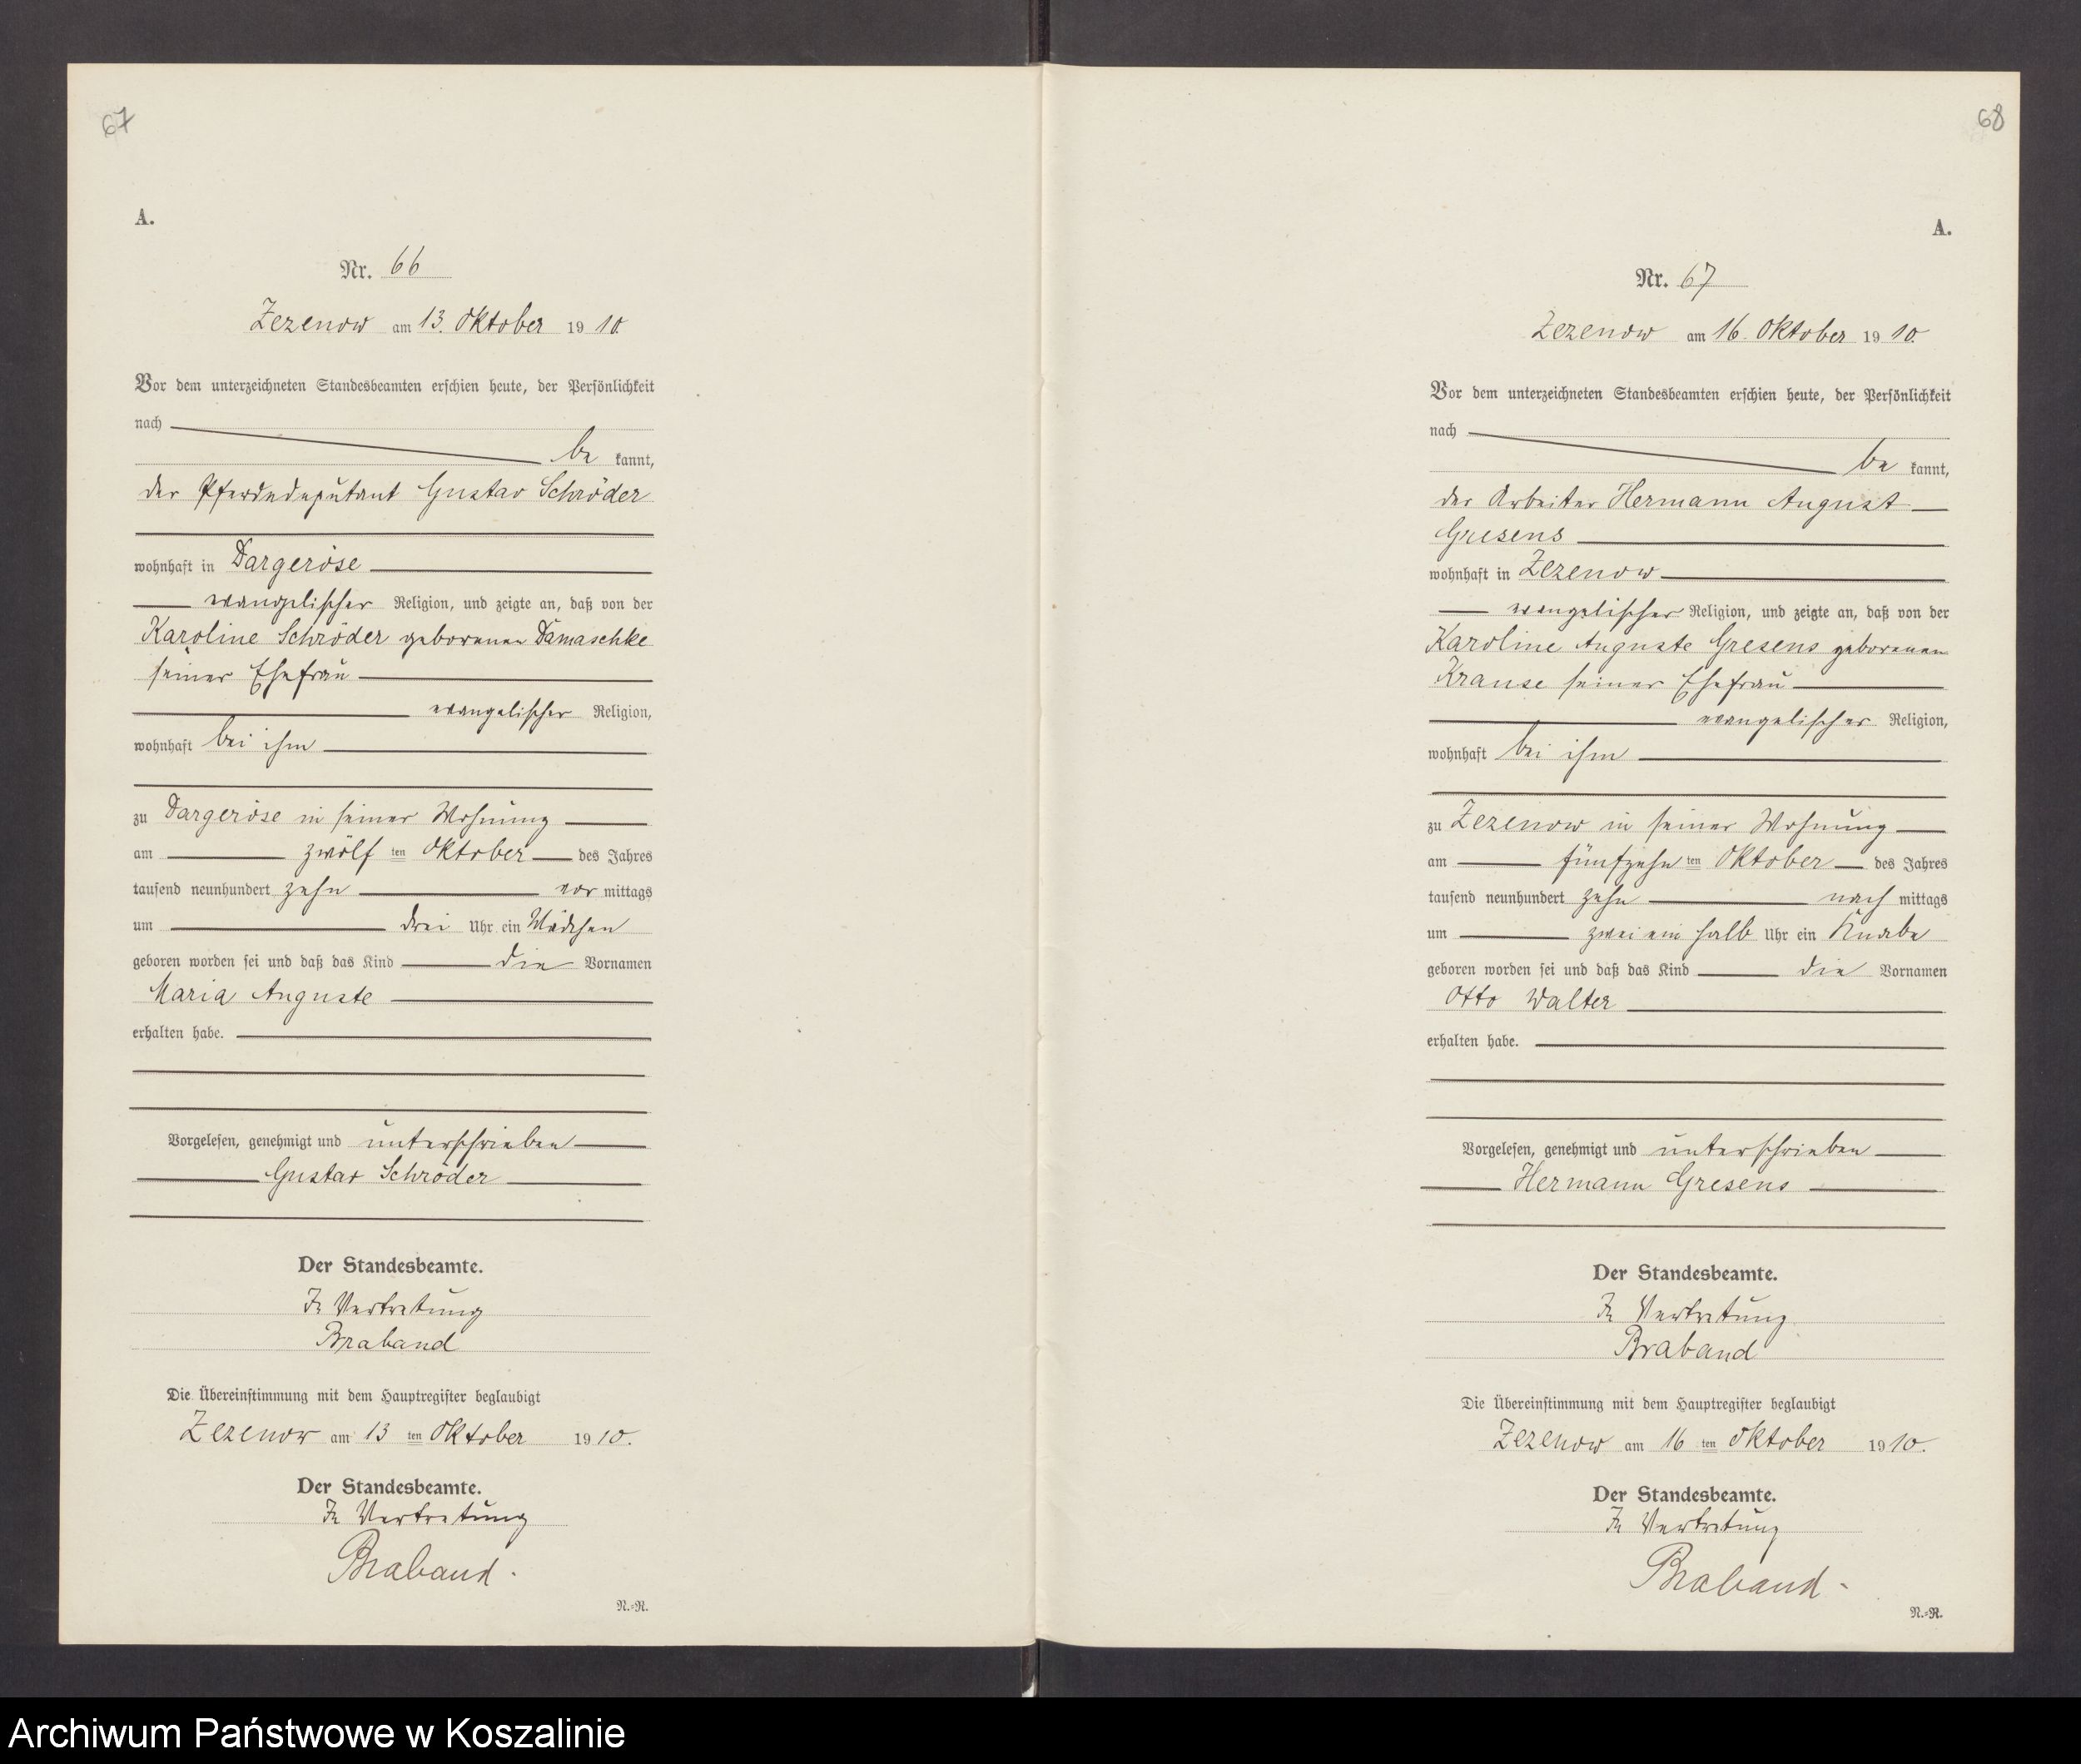 67
A.
Nr. 66
Zezenow am 13. Oktober 1910.
Vor dem unterzeichneten Standesbeamten erschien heute, der Persönlichkeit
nach
be kannt,
der Pferdedeputant Gustav Schröder
wohnhaft in Dargeröse
evangelischer Religion, und zeigte an, daß von der
Karoline Schröder geborenen Damaschke
seiner Ehefrau
evangelischer Religion,
wohnhaft bei ihm
zu Dargeröse in seiner Wohnung
am zwölf ten Oktober des Jahres
tausend neunhundert zehn vor mittags
um drei Uhr ein Mädchen
geboren worden sei und daß das Kind die Vornamen
Maria Auguste
erhalten habe.
Vorgelesen, genehmigt und unterschrieben
Gustav Schröder
Der Standesbeamte.
In Vertretung
Braband
Die Übereinstimmung mit dem Hauptregister beglaubigt
Zezenow am 13 ten Oktober 1910.
Der Standesbeamte.
In Vertretung
Braband.
N.-R.
68
A.
Nr. 67
Zezenow am 16. Oktober 1910.
Vor dem unterzeichneten Standesbeamten erschien heute, der Persönlichkeit
nach
be kannt,
der Arbeiter Hermann August
Gresens
wohnhaft in Zezenow
evangelischer Religion, und zeigte an, daß von der
Karoline Auguste Gresens geborenen
Krause seiner Ehefrau
evangelischer Religion,
wohnhaft bei ihm
zu Zezenow in seiner Wohnung
am fünfzehn ten Oktober des Jahres
tausend neunhundert zehn nach mittags
um zwei ein halb Uhr ein Knabe
geboren worden sei und daß das Kind die Vornamen
Otto Walter
erhalten habe.
Vorgelesen, genehmigt und unterschrieben
Hermann Gresens
Der Standesbeamte.
In Vertretung
Braband
Die Übereinstimmung mit dem Hauptregister beglaubigt
Zezenow am 16 ten Oktober 1910.
Der Standesbeamte.
In Vertretung
Braband.
N.-R.
Archiwum Państwowe w Koszalinie